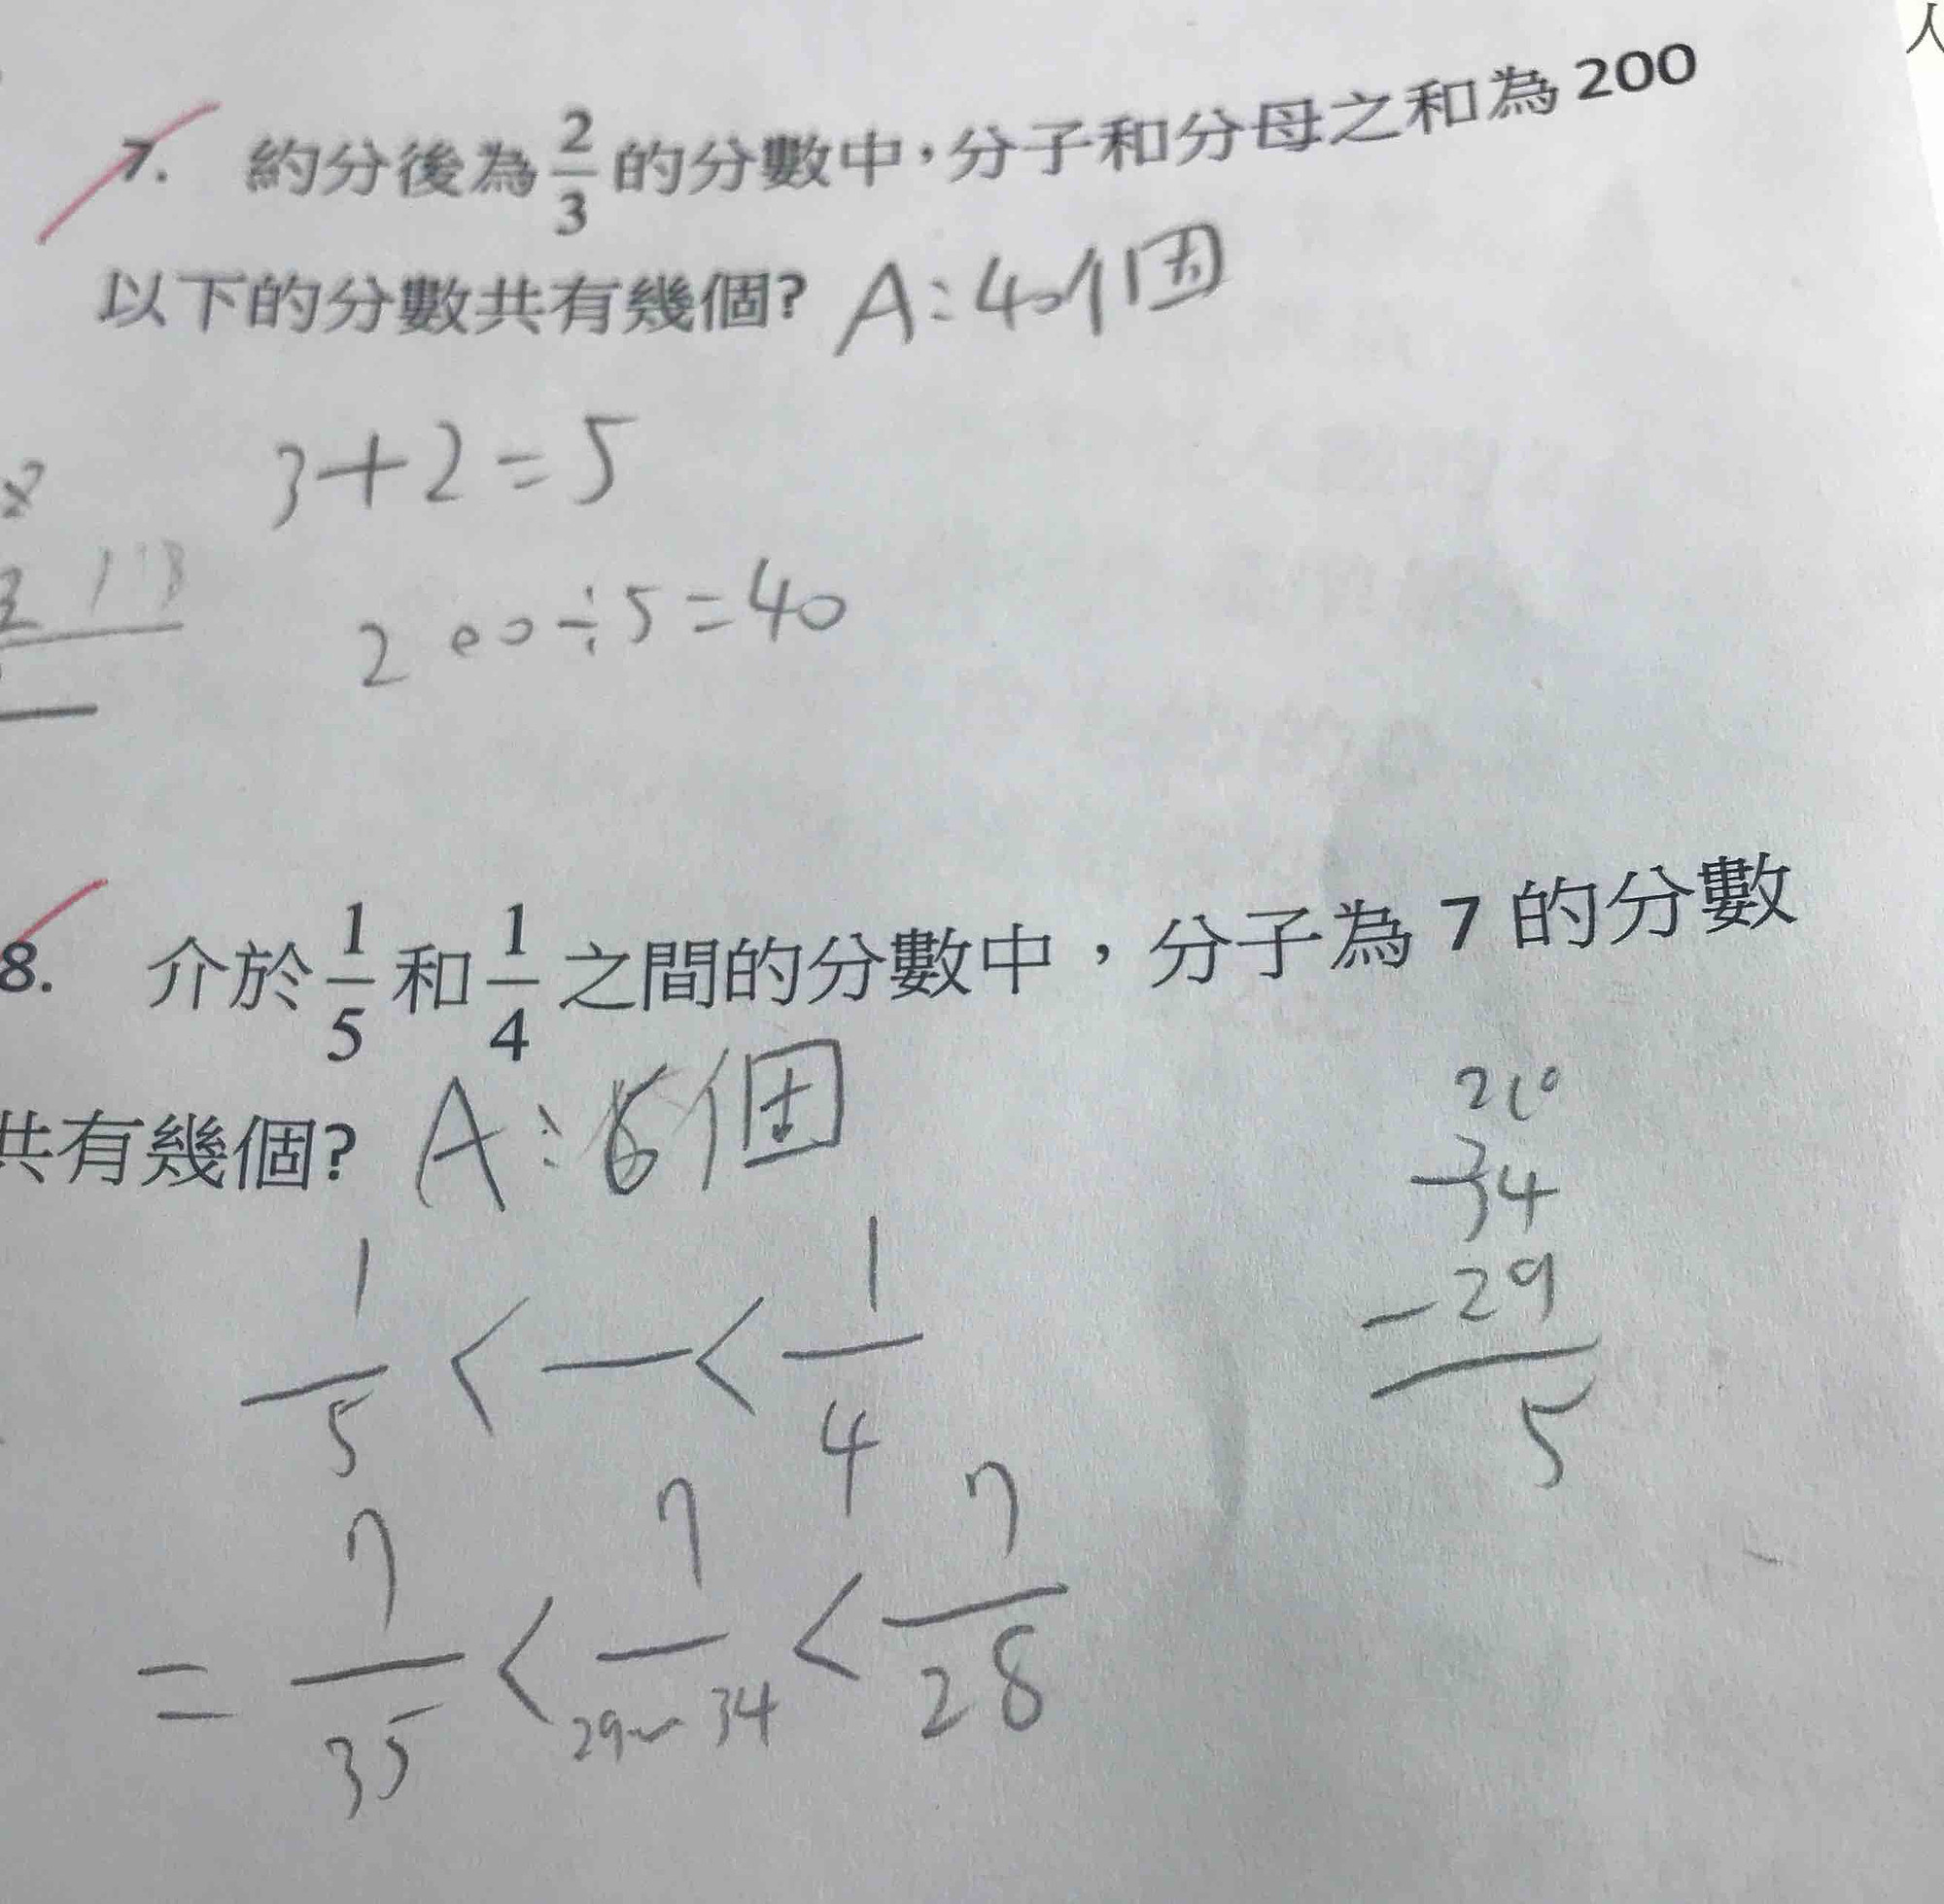 人
7. 約分後為 2/3 的分數中，分子和分母之和為 200
以下的分數共有幾個? A:40個
3+2=5
200÷5=40
8. 介於 1/5 和 1/4 之間的分數中，分子為 7 的分數
共有幾個? A:6個
1/5 < — < 1/4
= 7/35 < 7/29~34 < 7/28
34
-29
5